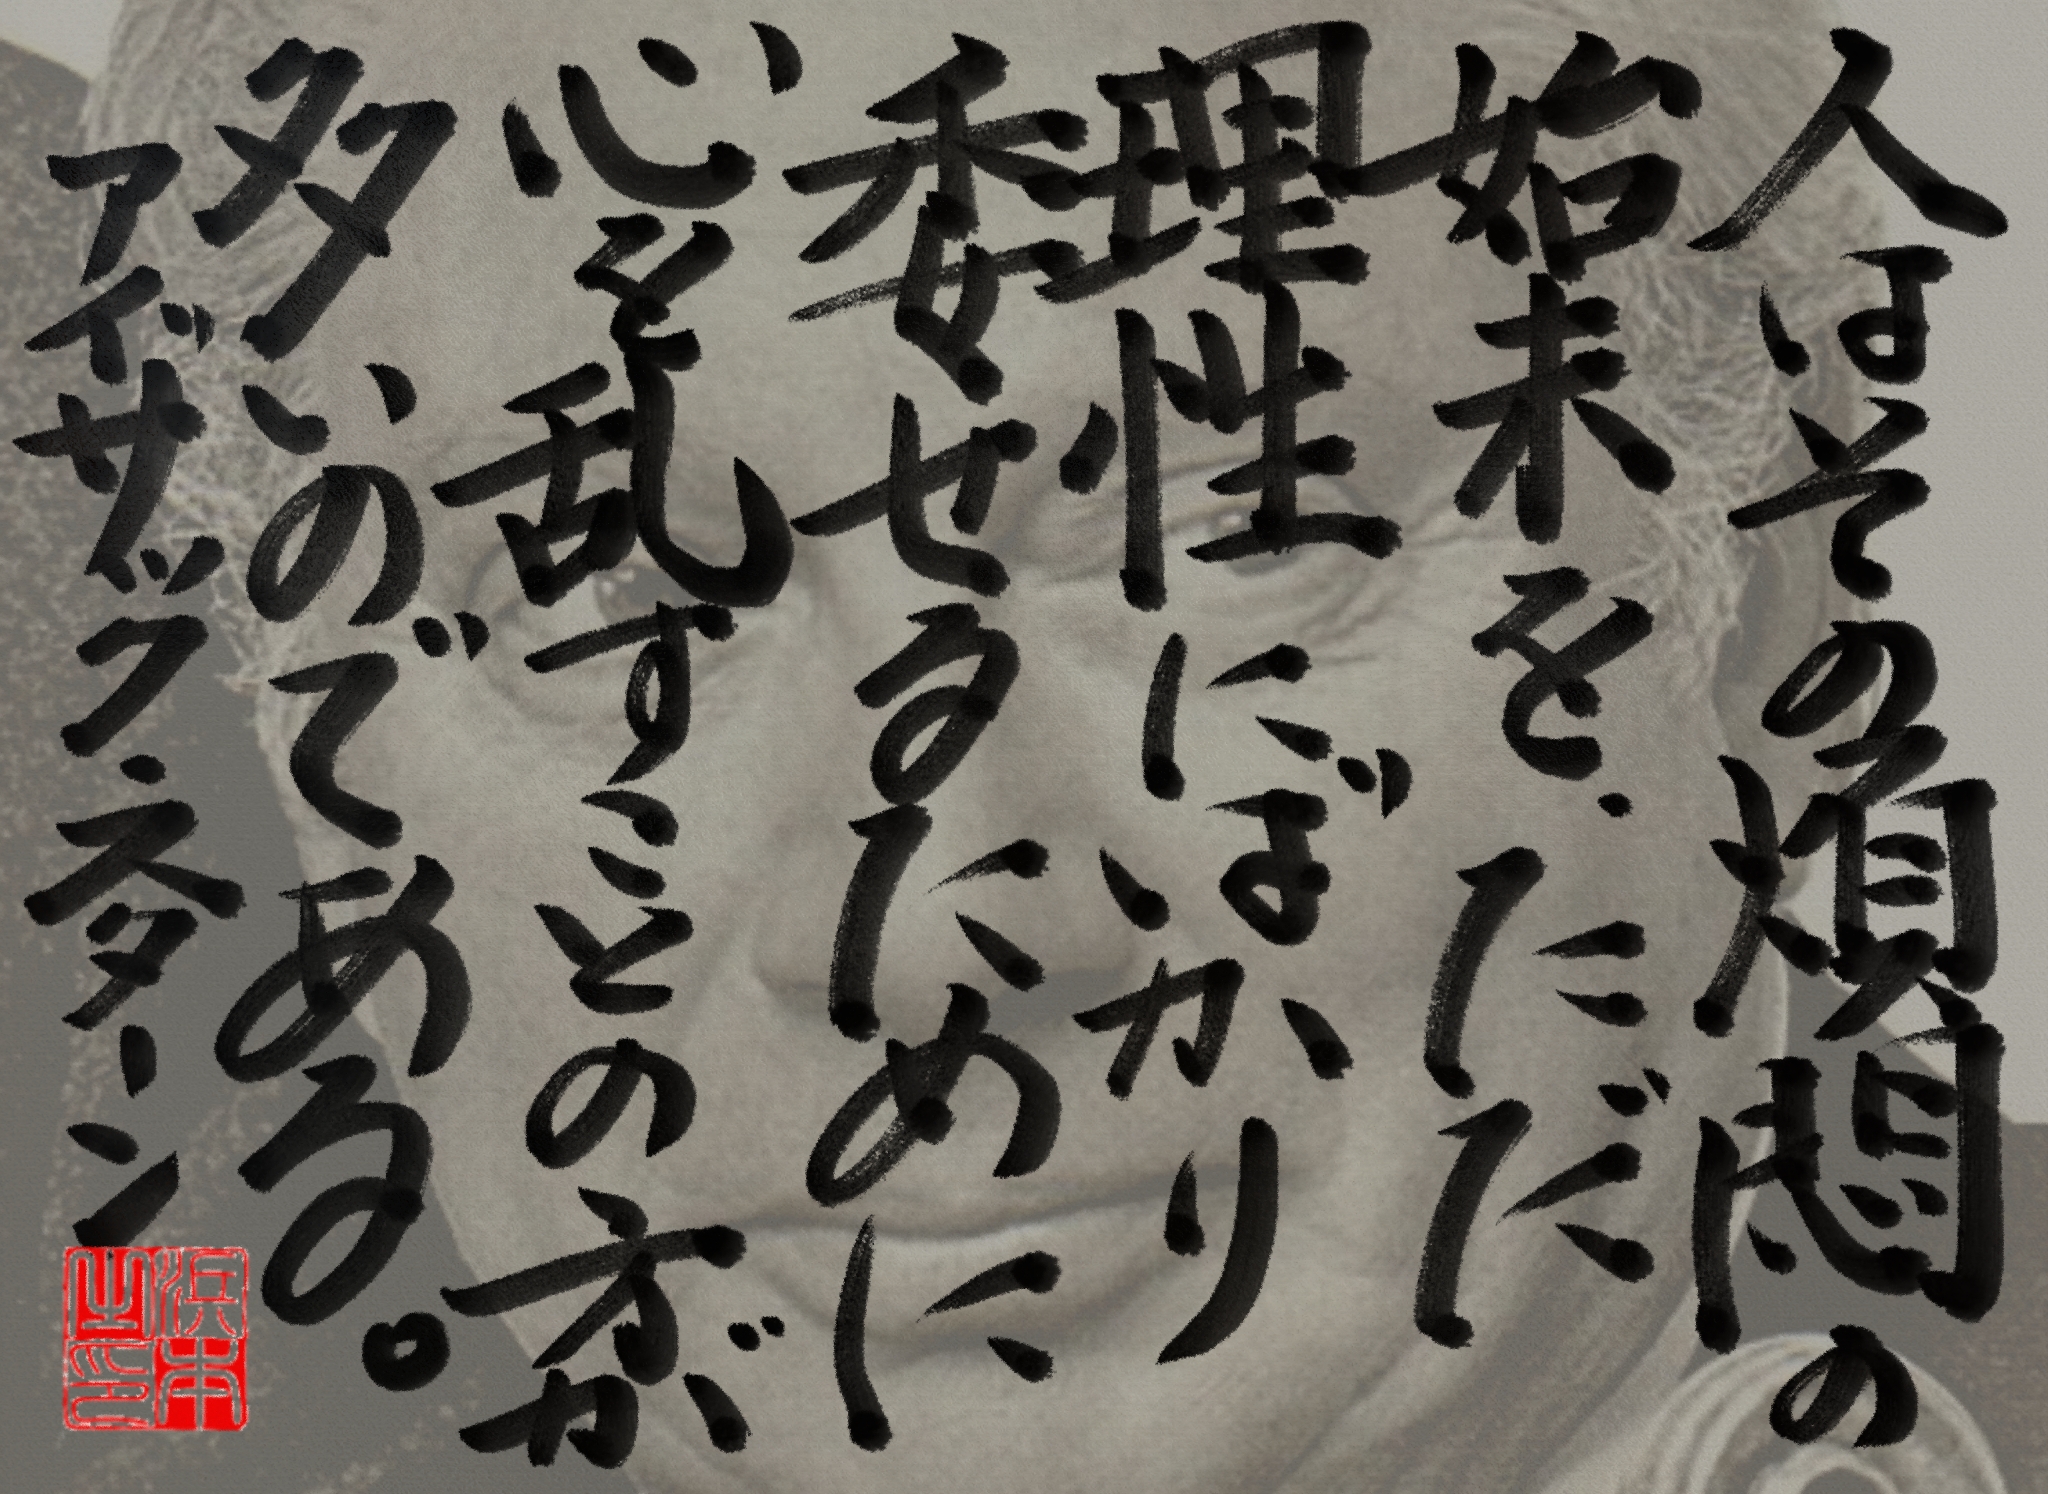 人はその煩悶の
始末を、ただただ
理性にばかり
委せるために、
心を乱すことの方が
多いのである。
アイザック・スターン
浜本
之印